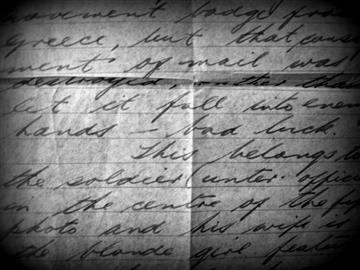 movement badge from
Greece, but that cons
ment of mail was
destroyed, rather than
let it fall into enem
hands – bad luck.
This belongs t
the soldier (unter. offic
in the centre of the
photo and his wife is
the blonde girl featu